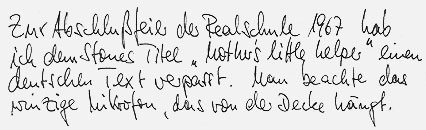 Zur Abschlußfeier der Realschule 1967 hab
ich dem Stones Titel „Mother's little helper" einen
deutschen Text verpasst. Man beachte das
winzige Mikrofon, das von der Decke hängt.